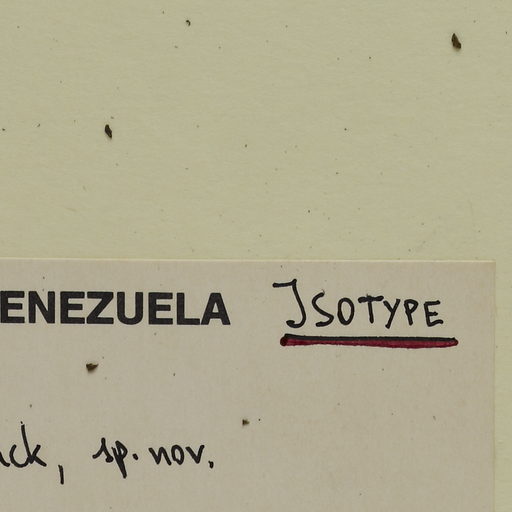 ENEZUELA ISOTYPE
ck, sp. nov.